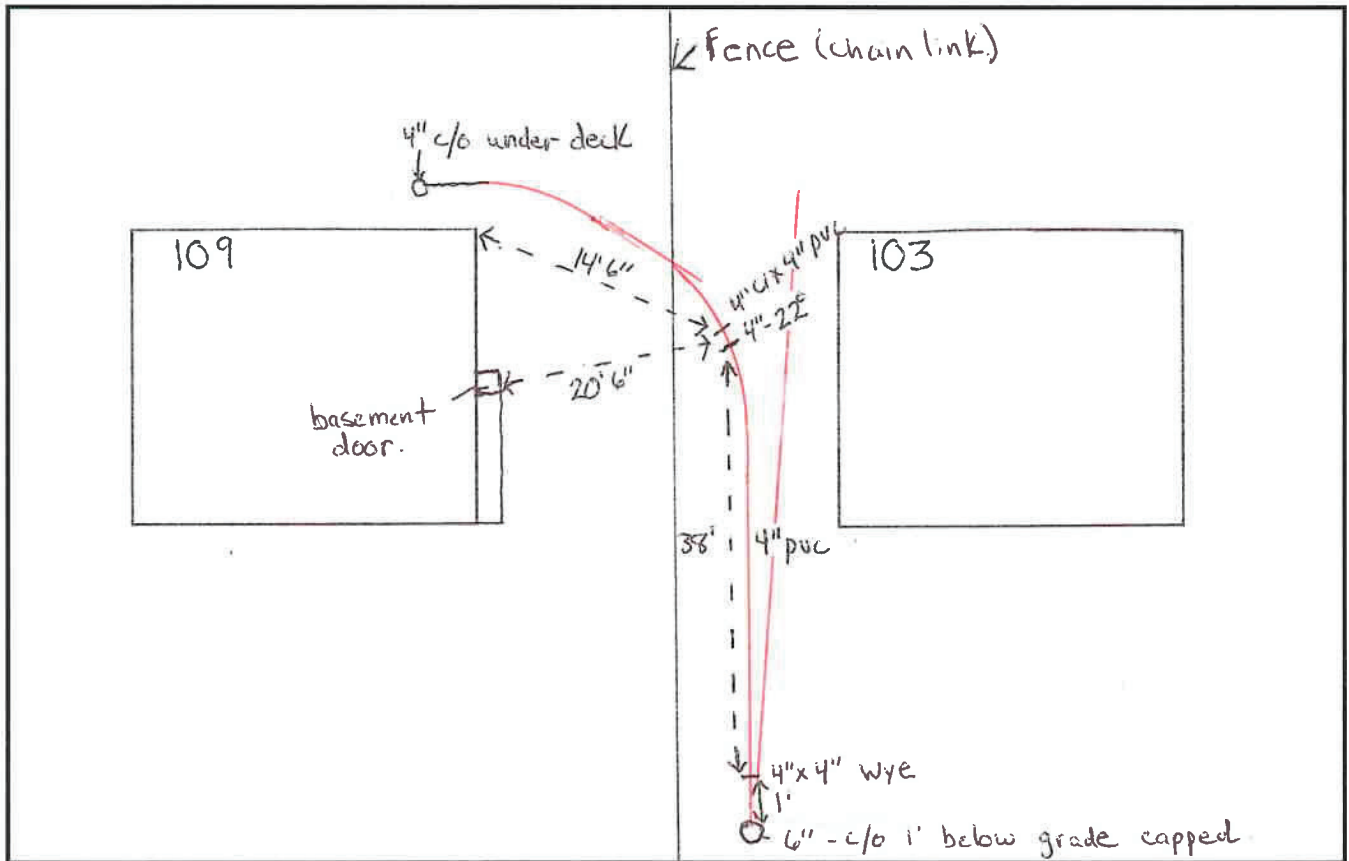 Fence (chain link)
4" c/o under deck
109
103
14'6"
4" ci x 4" pvc
4" - 22°
20'6"
basement
door.
38'
4" pvc
4" x 4" wye
1'
6" - c/o 1' below grade capped